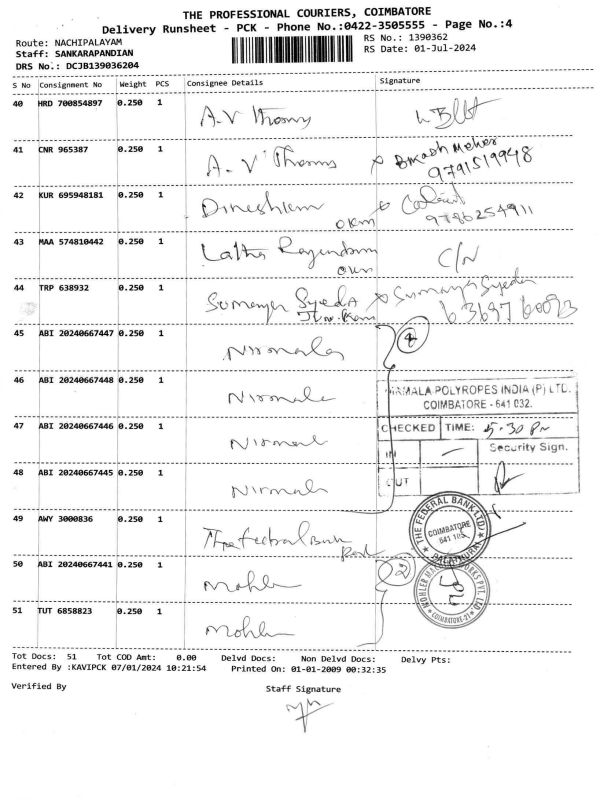 THE PROFESSIONAL COURIERS, COIMBATORE
Delivery Runsheet - PCK - Phone No.:0422-3505555 - Page No.:4
Route: NACHIPALAYAM
Staff: SANKARAPANDIAN
DRS No.: DCJB139036204
RS No.: 1390362
RS Date: 01-Jul-2024
S No Consignment No Weight PCS Consignee Details Signature
40 HRD 700854897 0.250 1 A.V Thoms
41 CNR 965387 0.250 1 A.V Thoms Bikash Meher
9791519948
42 KUR 695948181 0.250 1
9786254911
43 MAA 574810442 0.250 1 Latha C/N
44 TRP 638932 0.250 1 Sumaya Syeda Sumaya Syeda
6 3697 60093
45 ABI 20240667447 0.250 1 Nirmala 4
46 ABI 20240667448 0.250 1 Nirmala
KAMALA POLYROPES INDIA (P) LTD.
COIMBATORE - 641 032.
47 ABI 20240667446 0.250 1 Nirmala
CHECKED TIME: 5.30 Pm
IN Security Sign.
48 ABI 20240667445 0.250 1 Nirmala
OUT
49 AWY 3000836 0.250 1 The Federal Bank
THE FEDERAL BANK LTD
COIMBATORE
641 105
50 ABI 20240667441 0.250 1 Mohler 2
51 TUT 6858823 0.250 1 Mohler
COIMBATORE-21
Tot Docs: 51 Tot COD Amt: 0.00 Delvd Docs: Non Delvd Docs: Delvy Pts:
Entered By :KAVIPCK 07/01/2024 10:21:54 Printed On: 01-01-2009 00:32:35
Verified By Staff Signature